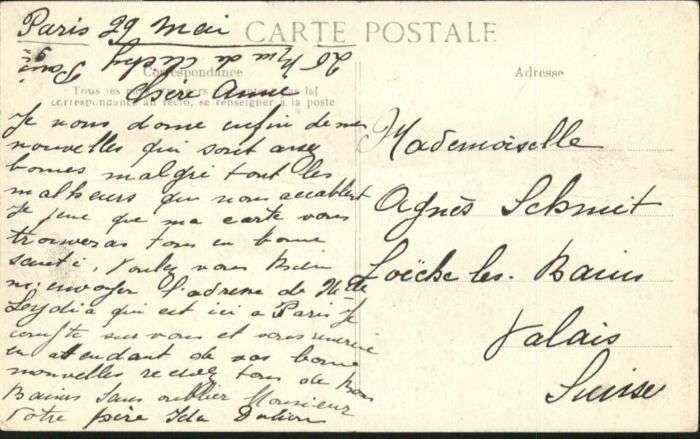 Paris 29 Mai
CARTE POSTALE
20 Rue de Clichy Paris
Correspondance
Adresse
Tous les pays
correspondance au recto, se renseigner à la poste
Chère Anne
Je vous donne enfin de mes
nouvelles qui sont assez
bonnes malgré tout les
malheurs qui nous accablent
Je pense que ma carte vous
trouveras tous en bonne
santé, Voulez vous bien
m'envoyer l'adresse de Mlle
Leydia qui est ici a Paris Je
compte sur vous et vous remercie
en attendant de vos bonne
nouvelles recevez tous de bons
Baisers sans oublier Monsieur
Votre Ida
Mademoiselle
Agnès Schmit
Loëche-les-Bains
Valais
Suisse